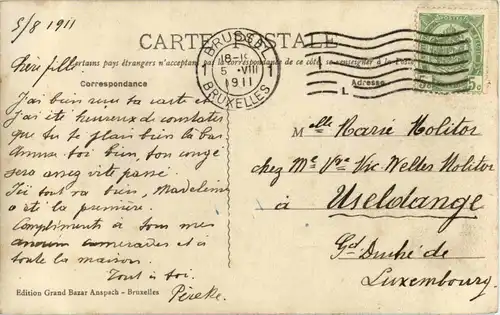 5/8 1911
CARTE POSTALE
Certains pays étrangers n'acceptent pas la correspondance de ce côté, se renseigner à la Poste
Correspondance
Adresse
BRUSSEL
5 VIII
1911
BRUXELLES
1
1
L
5c
chère fille.
J'ai bien reçu ta carte et
j'ai été heureux de constater
que tu te plais bien là bas
Amuse toi bien, ton congé
sera assez vite passé
Ici tout va bien, Madeleine
a été la première.
Compliments à tous mes
camerades et à
toute la maison.
Tout à toi.
Edition Grand Bazar Anspach - Bruxelles
Mlle Marie Molitor
chez Me Vve Vic. Welles Molitor
à Useldange
Gd Duché de
Luxembourg.